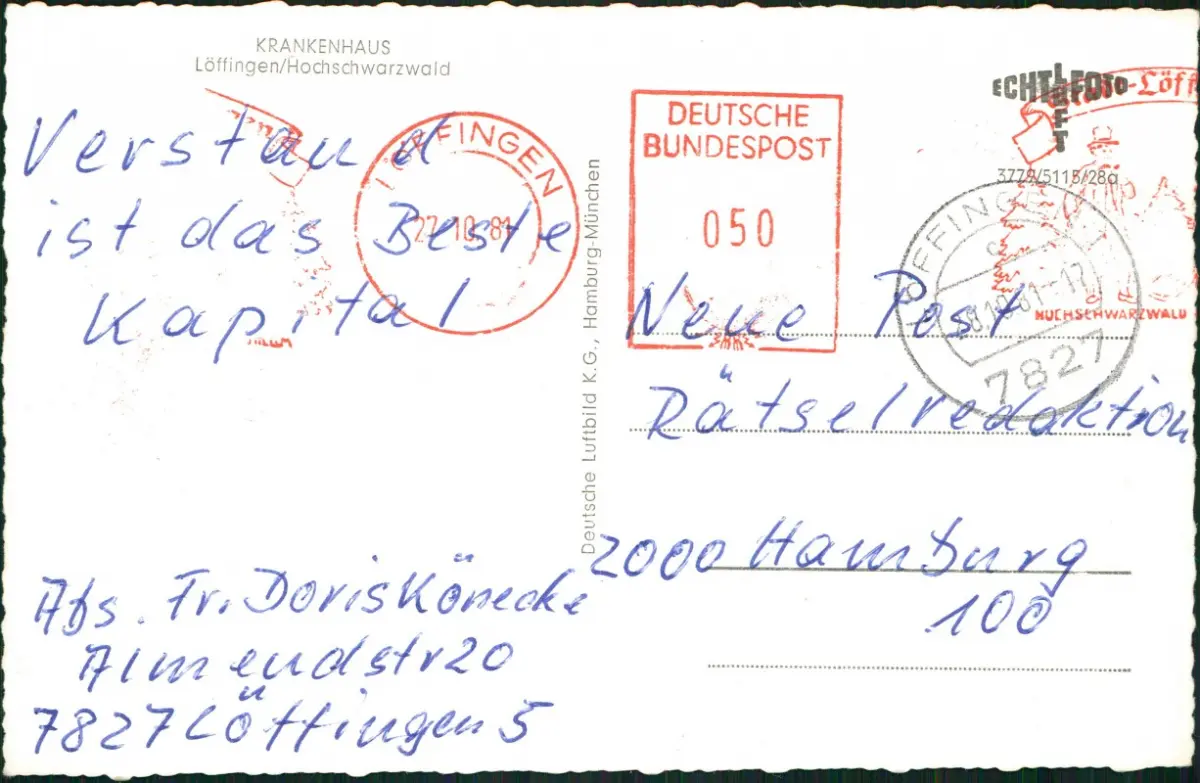 KRANKENHAUS
Löffingen/Hochschwarzwald
Verstand
ist das Beste
Kapital
Abs. Fr. Doris Könecke
Almendstr 20
7827 Löffingen 5
LÖFFINGEN
27.10.81
Deutsche Luftbild K.G., Hamburg-München
DEUTSCHE
BUNDESPOST
050
ECHT FOTO
LUFT
3779/5115/28a
HOCHSCHWARZWALD
LÖFFINGEN
7827
Neue Post
Rätselredaktion
2000 Hamburg
100